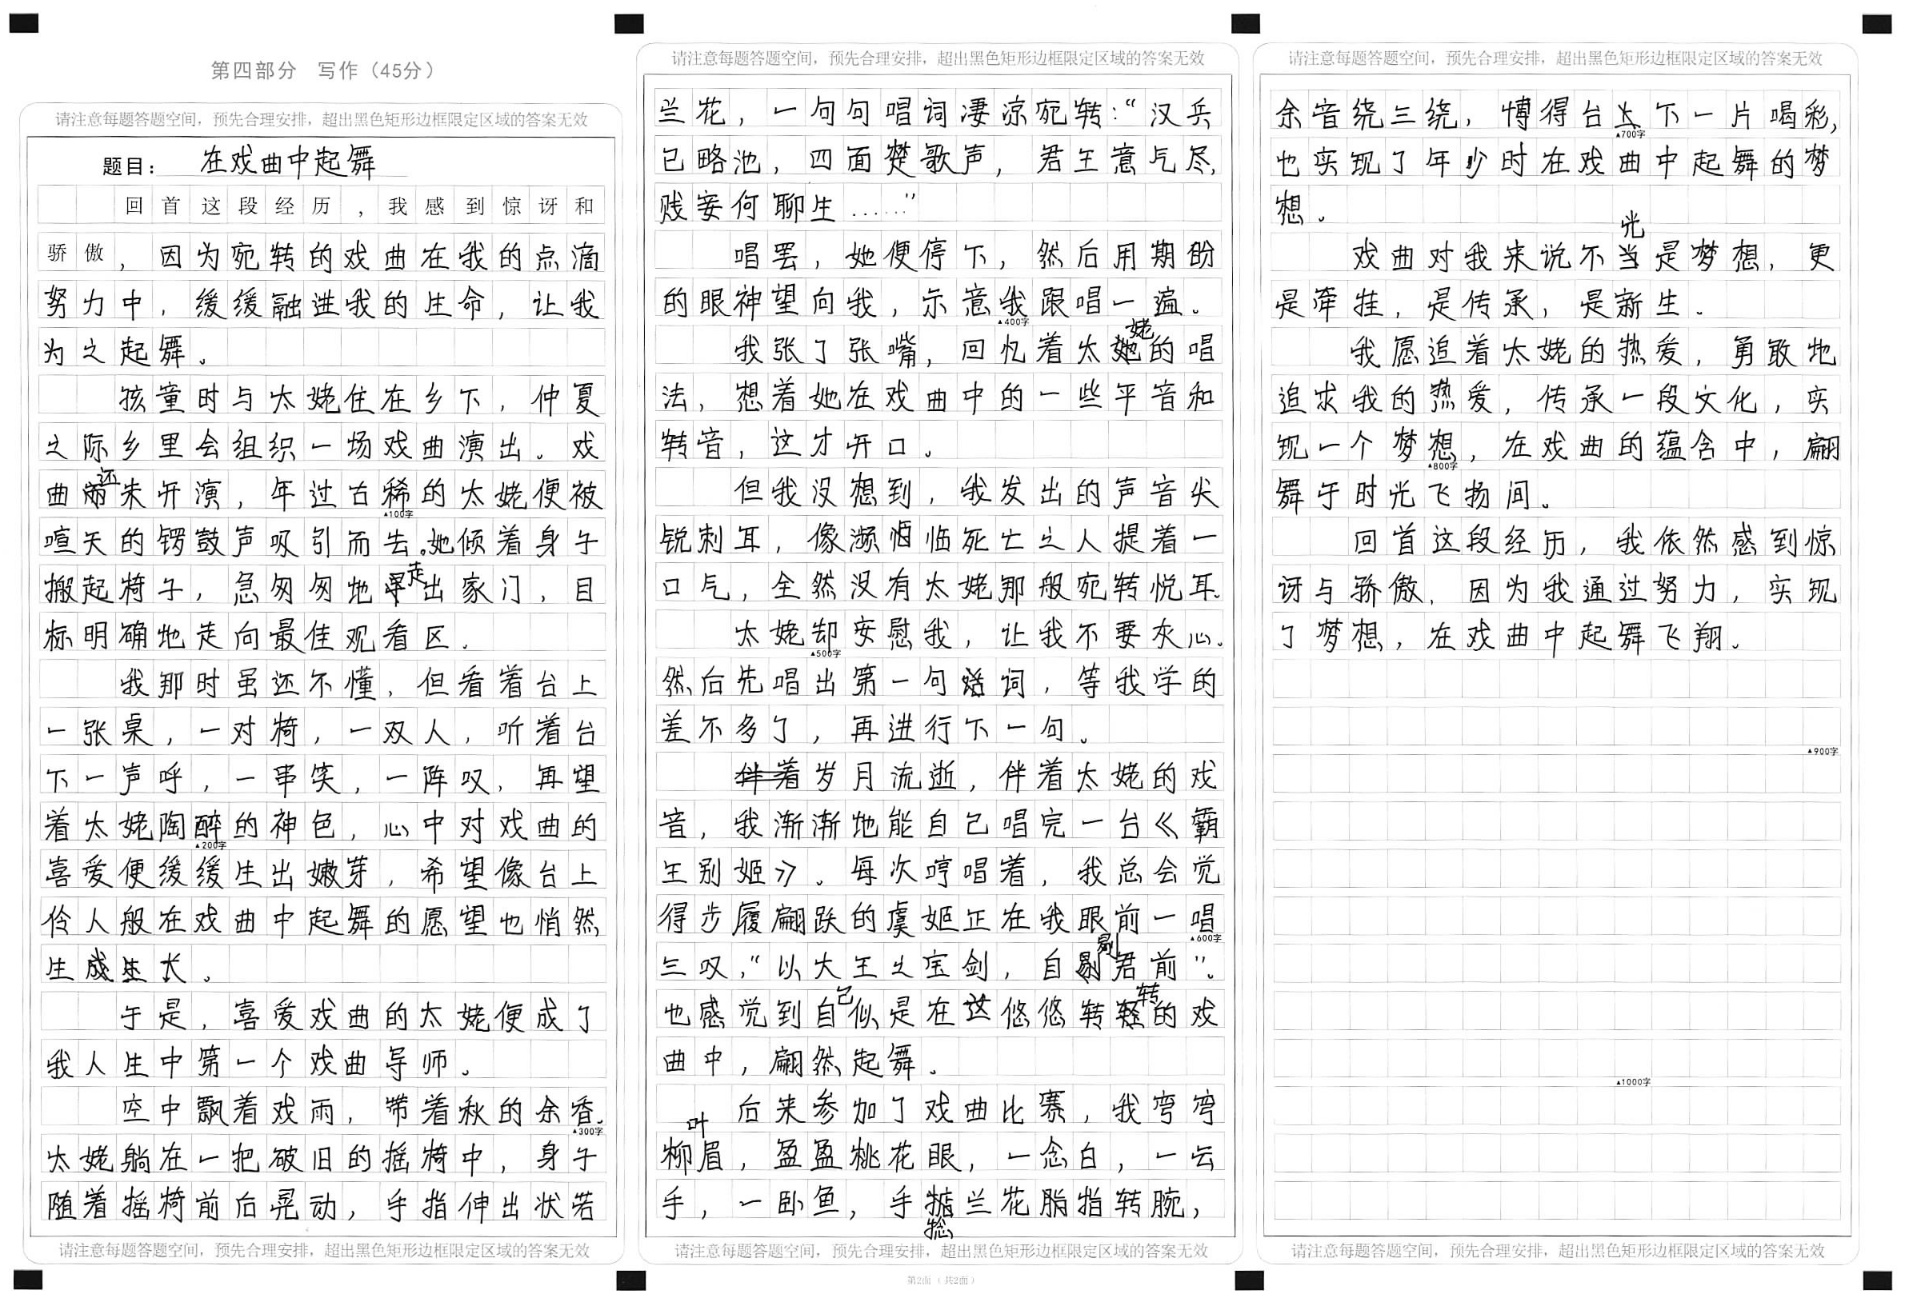 第四部分 写作（45分）
请注意每题答题空间，预先合理安排，超出黑色矩形边框限定区域的答案无效
题目： 在戏曲中起舞
回首这段经历，我感到惊讶和
骄傲，因为宛转的戏曲在我的点滴
努力中，缓缓融进我的生命，让我
为之起舞。
孩童时与太姥住在乡下，仲夏
之际乡里会组织一场戏曲演出。戏
曲还未开演，年过古稀的太姥便被
▲100字
喧天的锣鼓声吸引而去。她倾着身子
搬起椅子，急匆匆地走出家门，目
标明确地走向最佳观看区。
我那时虽还不懂，但看着台上
一张桌，一对椅，一双人，听着台
下一声呼，一串笑，一阵叹，再望
着太姥陶醉的神色，心中对戏曲的
▲200字
喜爱便缓缓生出嫩芽，希望像台上
伶人般在戏曲中起舞的愿望也悄然
生成生长。
于是，喜爱戏曲的太姥便成了
我人生中第一个戏曲导师。
空中飘着戏雨，带着秋的余香。
▲300字
太姥躺在一把破旧的摇椅中，身子
随着摇椅前后晃动，手指伸出状若
请注意每题答题空间，预先合理安排，超出黑色矩形边框限定区域的答案无效
请注意每题答题空间，预先合理安排，超出黑色矩形边框限定区域的答案无效
兰花，一句句唱词凄凉宛转：“汉兵
已略池，四面楚歌声，君王意气尽，
贱妾何聊生……”
唱罢，她便停下，然后用期盼
的眼神望向我，示意我跟唱一遍。
▲400字
我张了张嘴，回忆着太姥的唱
法，想着她在戏曲中的一些平音和
转音，这才开口。
但我没想到，我发出的声音尖
锐刺耳，像濒临死亡之人提着一
口气，全然没有太姥那般宛转悦耳。
太姥却安慰我，让我不要灰心。
▲500字
然后先唱出第一句词，等我学的
差不多了，再进行下一句。
岁月流逝，伴着太姥的戏
音，我渐渐地能自己唱完一台《霸
王别姬》。每次哼唱着，我总会觉
得步履翩跌的虞姬正在我眼前一唱
▲600字
三叹，“以大王之宝剑，自刎君前”。
也感觉到自己似是在这悠悠转转的戏
曲中，翩然起舞。
后来参加了戏曲比赛，我弯弯
柳叶眉，盈盈桃花眼，一念白，一云
手，一卧鱼，手捻兰花脂指转腕，
请注意每题答题空间，预先合理安排，超出黑色矩形边框限定区域的答案无效
第2面（共2面）
请注意每题答题空间，预先合理安排，超出黑色矩形边框限定区域的答案无效
余音绕三绕，博得台下一片喝彩，
▲700字
也实现了年少时在戏曲中起舞的梦
想。
戏曲对我来说不光是梦想，更
是牵挂，是传承，是新生。
我愿追着太姥的热爱，勇敢地
追求我的热爱，传承一段文化，实
现一个梦想，在戏曲的蕴含中，翩
▲800字
舞于时光飞扬间。
回首这段经历，我依然感到惊
讶与骄傲，因为我通过努力，实现
了梦想，在戏曲中起舞飞翔。
▲900字
▲1000字
请注意每题答题空间，预先合理安排，超出黑色矩形边框限定区域的答案无效